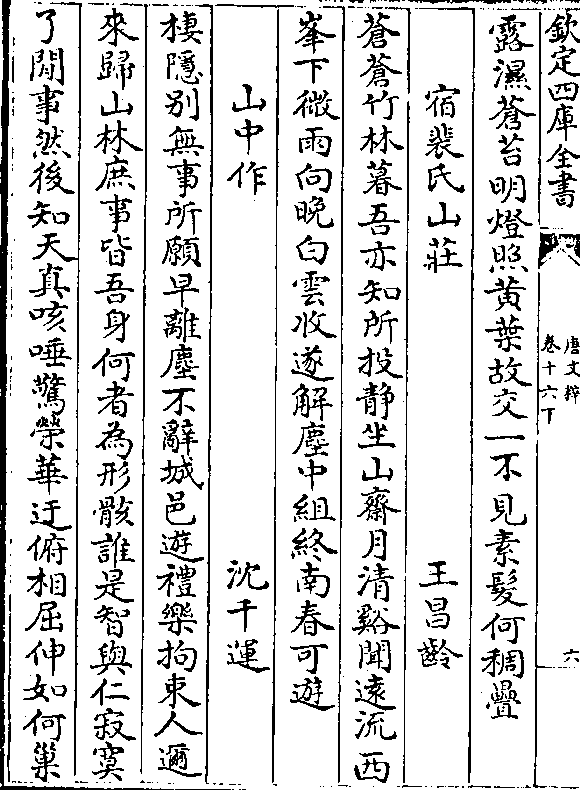 欽定四庫全書
唐文粹
卷十六下
六
露濕蒼苔明燈照黄葉故交一不見素髮何稠疊
宿裴氏山莊 王昌齡
蒼蒼竹林暮吾亦知所投静坐山齋月清谿聞遠流西
峯下微雨向晚白雲收遂解塵中組終南春可遊
山中作 沈千運
棲隠别無事所願早離塵不辭城邑遊禮樂拘束人邇
來歸山林庶事皆吾身何者為形骸誰是智與仁寂寞
了閒事然後知天真咳唾驚榮華迂俯相屈伸如何巢